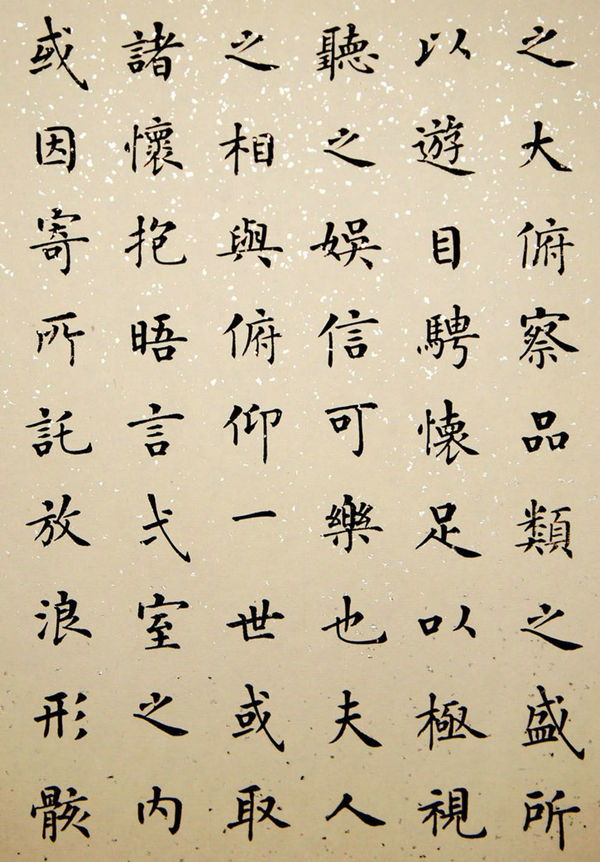 之大俯察品類之盛所
以遊目騁懐足以極視
聽之娛信可樂也夫人
之相與俯仰一世或取
諸懷抱晤言弍室之内
或因寄所託放浪形骸